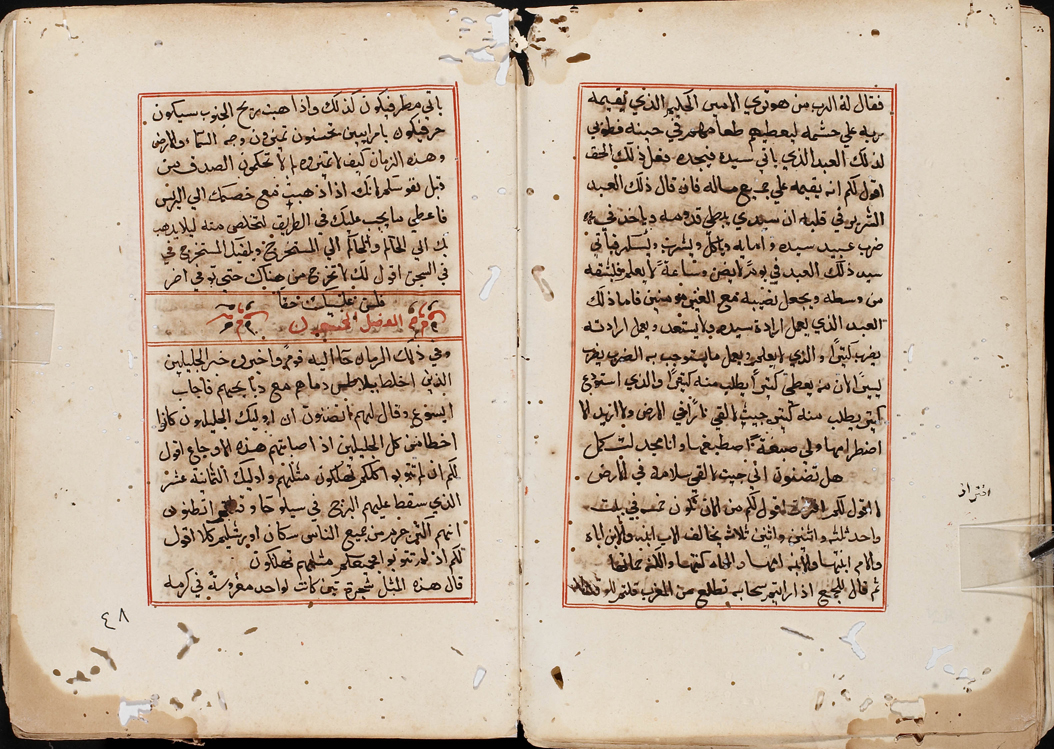 فقال له الرب من هو تري الامين الحكيم الذي يقيمه
ربه علي حشمه ليعطيهم طعامهم في حينه فطوبي
لذلك العبد الذي ياتي سيده فيجده يفعل ذلك الحق
اقول لكم انه يقيمه علي جميع ماله فان قال ذلك العبد
الشرير في قلبه ان سيدي يبطي قدومه وياخذ في
ضرب عبيد سيده و امايه وياكل ويشرب ويسكر فياتي
سيد ذلك العبد في يوم لا يضن وساعة لا يعلم فيشقه
من وسطه ويجعل نصيبه مع الغير مومنين فاما ذلك
العبد الذي يعلم ارادة سيده ولا يستعد ويعمل ارادته
يضرب كثيرا و الذي لا يعلم ويعمل ما يستوجب به الضرب يضرب
يسيرا لان من يعطي كثيرا يطلب منه كثيرا والذي استودع
كثير يطلب منه كثير جيت لالقي نارا في الارض وما اريد الا
اضطرامها ولي صبغة اصطبغها وانا مجد لتكمل
هل تضنون اني جيت لالقي سلامة في الارض
لا اقول لكم اقول لكم من الان تكون خمسه في بيت
واحد ثلثه واثنين واثنين ثلاث يخالف الاب ابنه والابن اباه
والام ابنتها والابنه امها والحماه كنتها والكنه حماتها
ثم قال للجمع اذا رايتم سحابه تطلع من المغرب قلتم
افتراق
ياتي مطر فيكون كذلك واذا هبت ريح الجنوب سيكون
حر فيكون يا مراييين تحسنون تميزون وجه السماء والارض
وهذه الزمان كيف لا تميزوه لم لا تحكمون الصدق من
قبل نفوسكم لانك اذا ذهبت مع خصمك الي الريس
فاعطي ما يجب عليك في الطريق لتخلص منه ليلا يذهب
بك الي الحاكم والحاكم الي المستخرج ويلقيك المستخرج في
السجن اقول لك لا تخرج من هناك حتي توفي اخر
فلس عليك حقا
الفصل الخمسون
وفي ذلك الزمان جا اليه قوم واخبروه خبر الجليليين
الذين اخلط بيلاطس دماهم مع دبايحهم فاجاب
ايسوع وقال لهم اتضنون ان اوليك الجليليون كانوا
اخطا من كل الجليليين اذ اصابتهم هذه الاوجاع اقول
لكم ان لم تتوبوا كلكم تهلكون مثلهم واوليك الثمانية عشر
الذي سقط عليهم البرج في سيلوحا و انظنون
انهم اكثر جرم من جميع الناس سكان اورشليم كلا اقول
لكم اذ لم تتوبوا جميعكم مثلهم تهلكون
قال هذه المثل شجرة تين كانت لواحد مغروسة في كرمه
٤٨